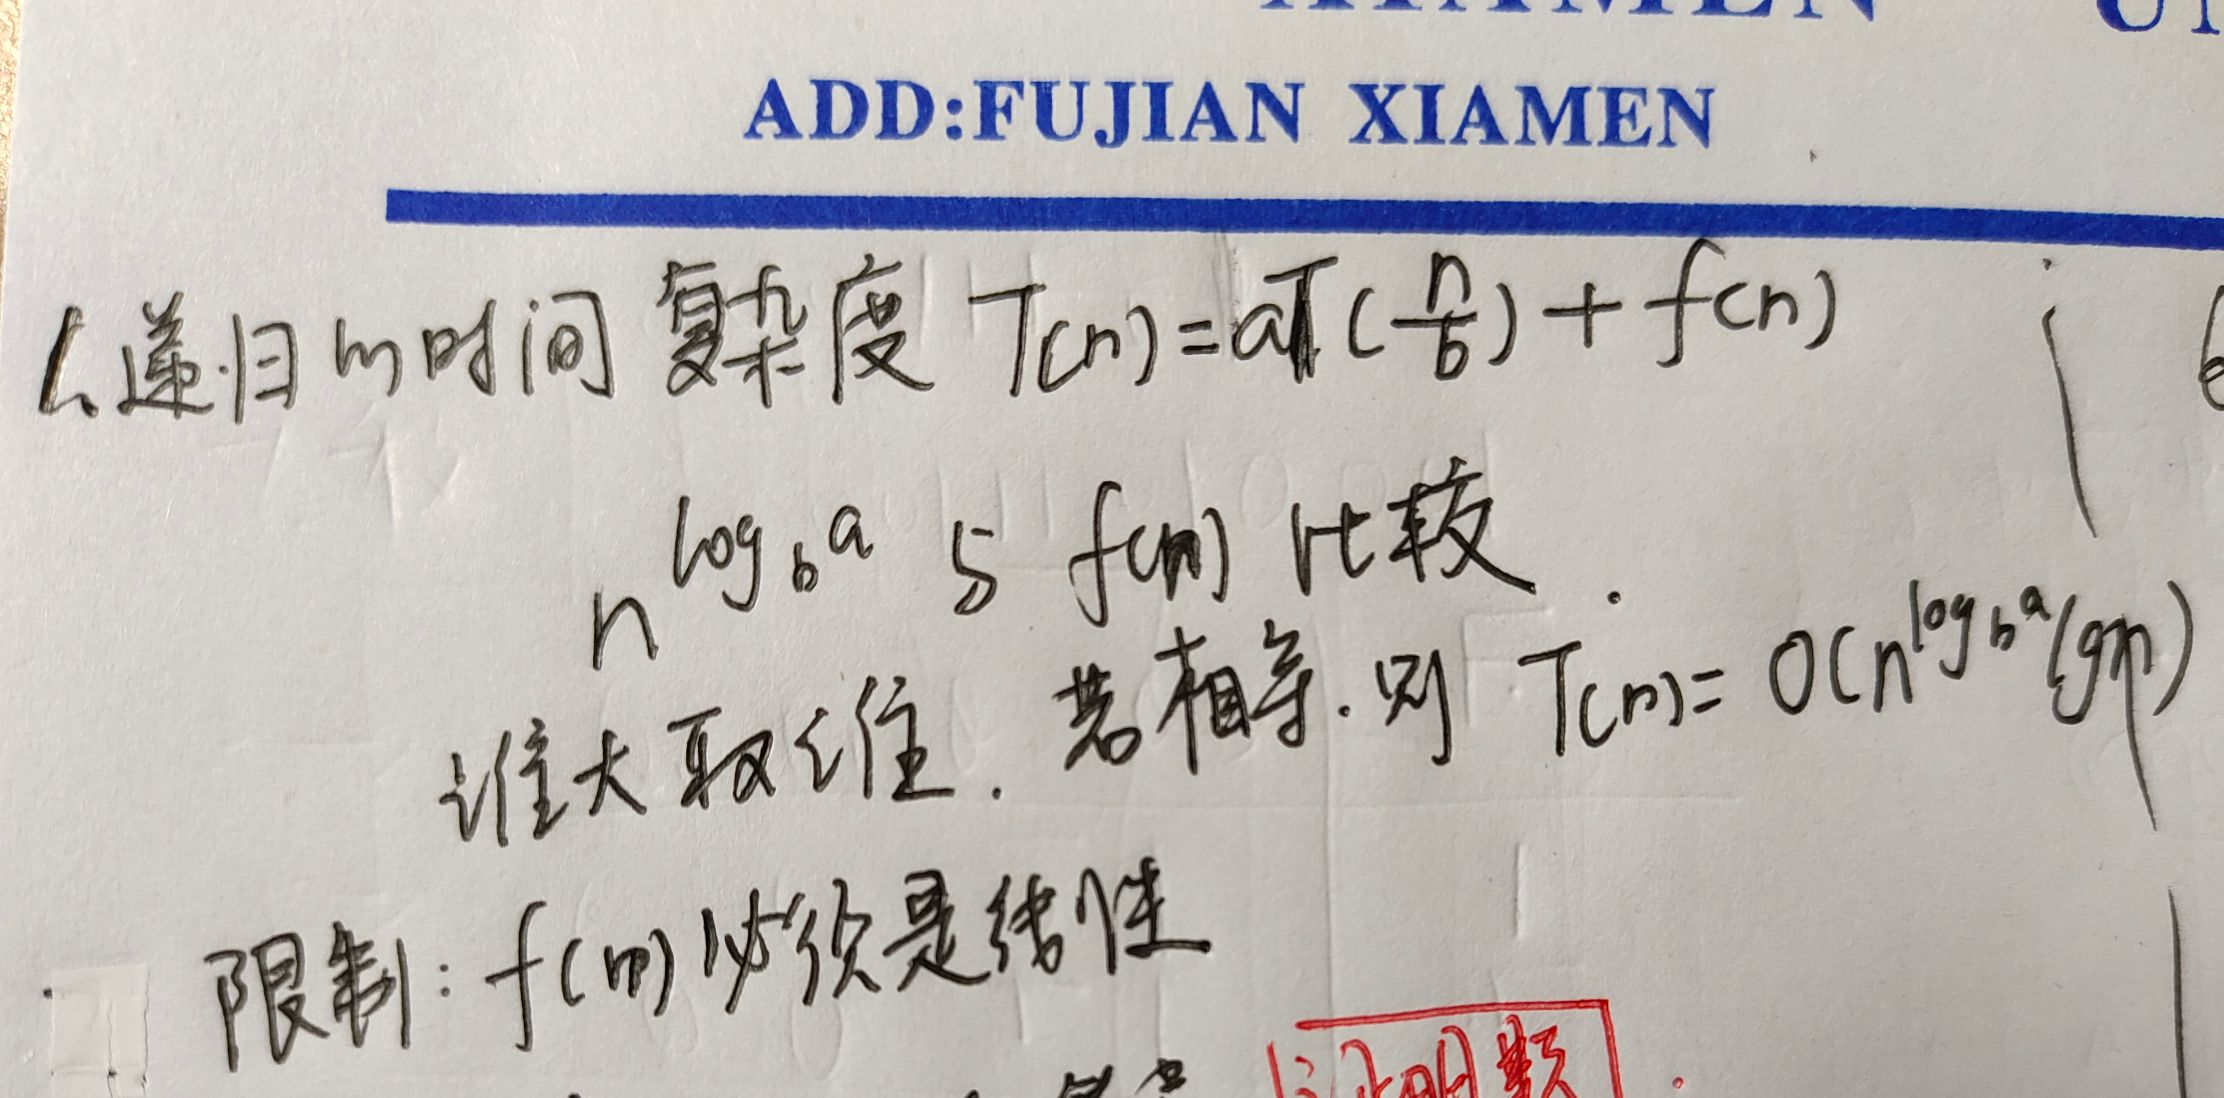 ADD:FUJIAN XIAMEN
1、递归的时间复杂度 T(n)=aT(n/b)+f(n)
n^{log_b a} 与 f(n) 比较.
谁大取谁.若相等.则 T(n)=O(n^{log_b a}lgn)
限制:f(n)必须是线性
证明题